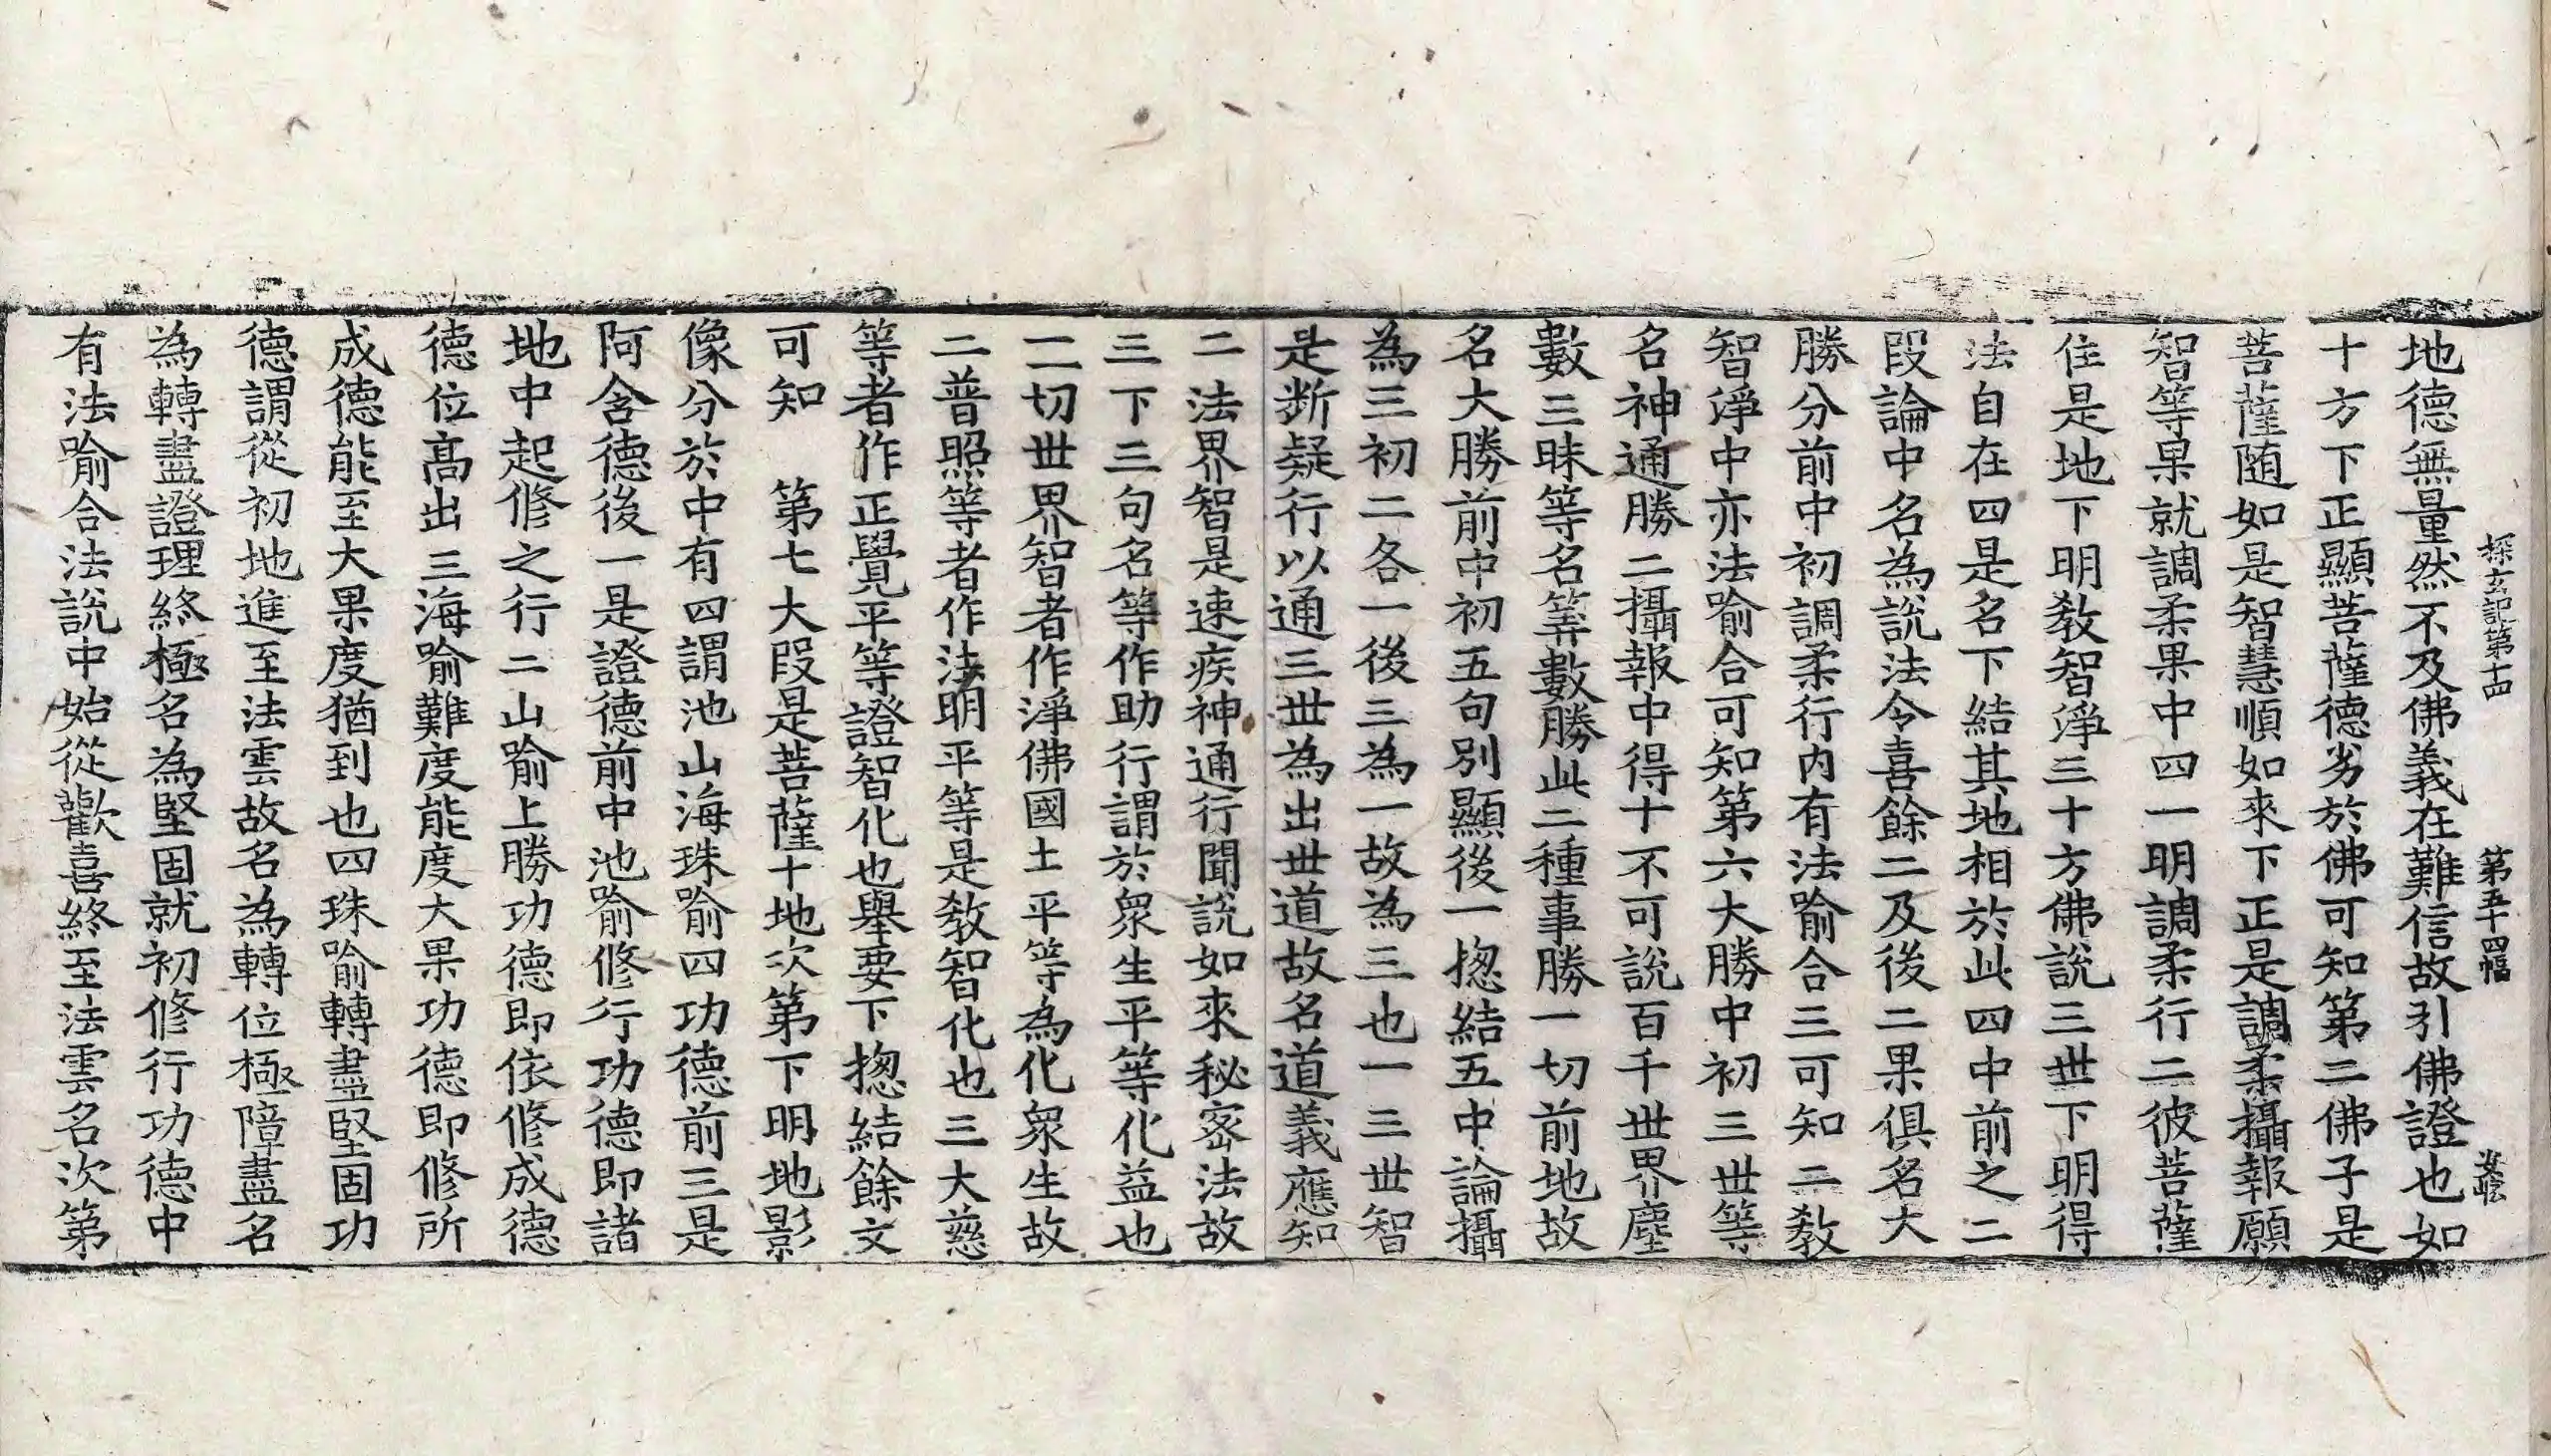 探玄記第十四 第五十四幅
地德無量然不及佛義在難信故引佛證也如
十方下正顯菩薩德劣於佛可知第二佛子是
菩薩随如是智慧順如來下正是調柔攝報願
智等果就調柔果中四一明調柔行二彼菩薩
住是地下明教智淨三十方佛說三世下明得
法自在四是名下結其地相於此四中前之二
段論中名為說法令喜餘二及後二果俱名大
勝分前中初調柔行内有法喻合三可知二教
智淨中亦法喻合可知第六大勝中初三世等
名神通勝二攝報中得十不可說百千世界塵
數三昧等名筭數勝此二種事勝一切前地故
名大勝前中初五句別顯後一揔結五中論攝
為三初二各一後三為一故為三也一三世智
是断疑行以通三世為出世道故名道義應知
二法界智是速疾神通行聞說如來秘密法故
三下三句名等作助行謂於衆生平等化益也
一一切世界智者作淨佛國土平等為化衆生故
二普照等者作法明平等是教智化也三大慈
等者作正覺平等證智化也舉要下揔結餘文
可知　第七大段是菩薩十地次第下明地影
像分於中有四謂池山海珠喻四功德前三是
阿含德後一是證德前中池喻修行功德即諸
地中起修之行二山喻上勝功德即依修成德
德位高出三海喻難度能度大果功德即修所
成德能至大果度猶到也四珠喻轉盡堅固功
德謂從初地進至法雲故名為轉位極障盡名
為轉盡證理終極名為堅固就初修行功德中
有法喻合法說中始從歡喜終至法雲名次第